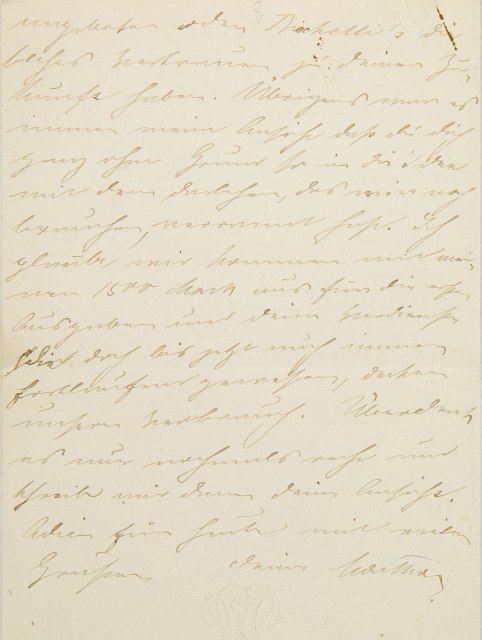 ungeboten oder Bichelli's die
beste Vertrauen zu deiner Zu-
kunft haben. Übrigens war es
immer meine Ansicht daß du dich
ganz ohne Grund so in die Idee
mit dem Darlehen, das wir noch
brauchen, verrannt hast. Ich
glaube wir kommen mit mei-
nen 1500 Mark aus für die ersten
Ausgaben und deine Verdienste
die doch bis jetzt auch immer
fortlaufend gewesen, decken
unseren Verbrauch. Überdenk
es nur nochmals recht und
schreib mir dann deine Ansicht.
Adieu für heute mit vielen
Grüßen deine Martha